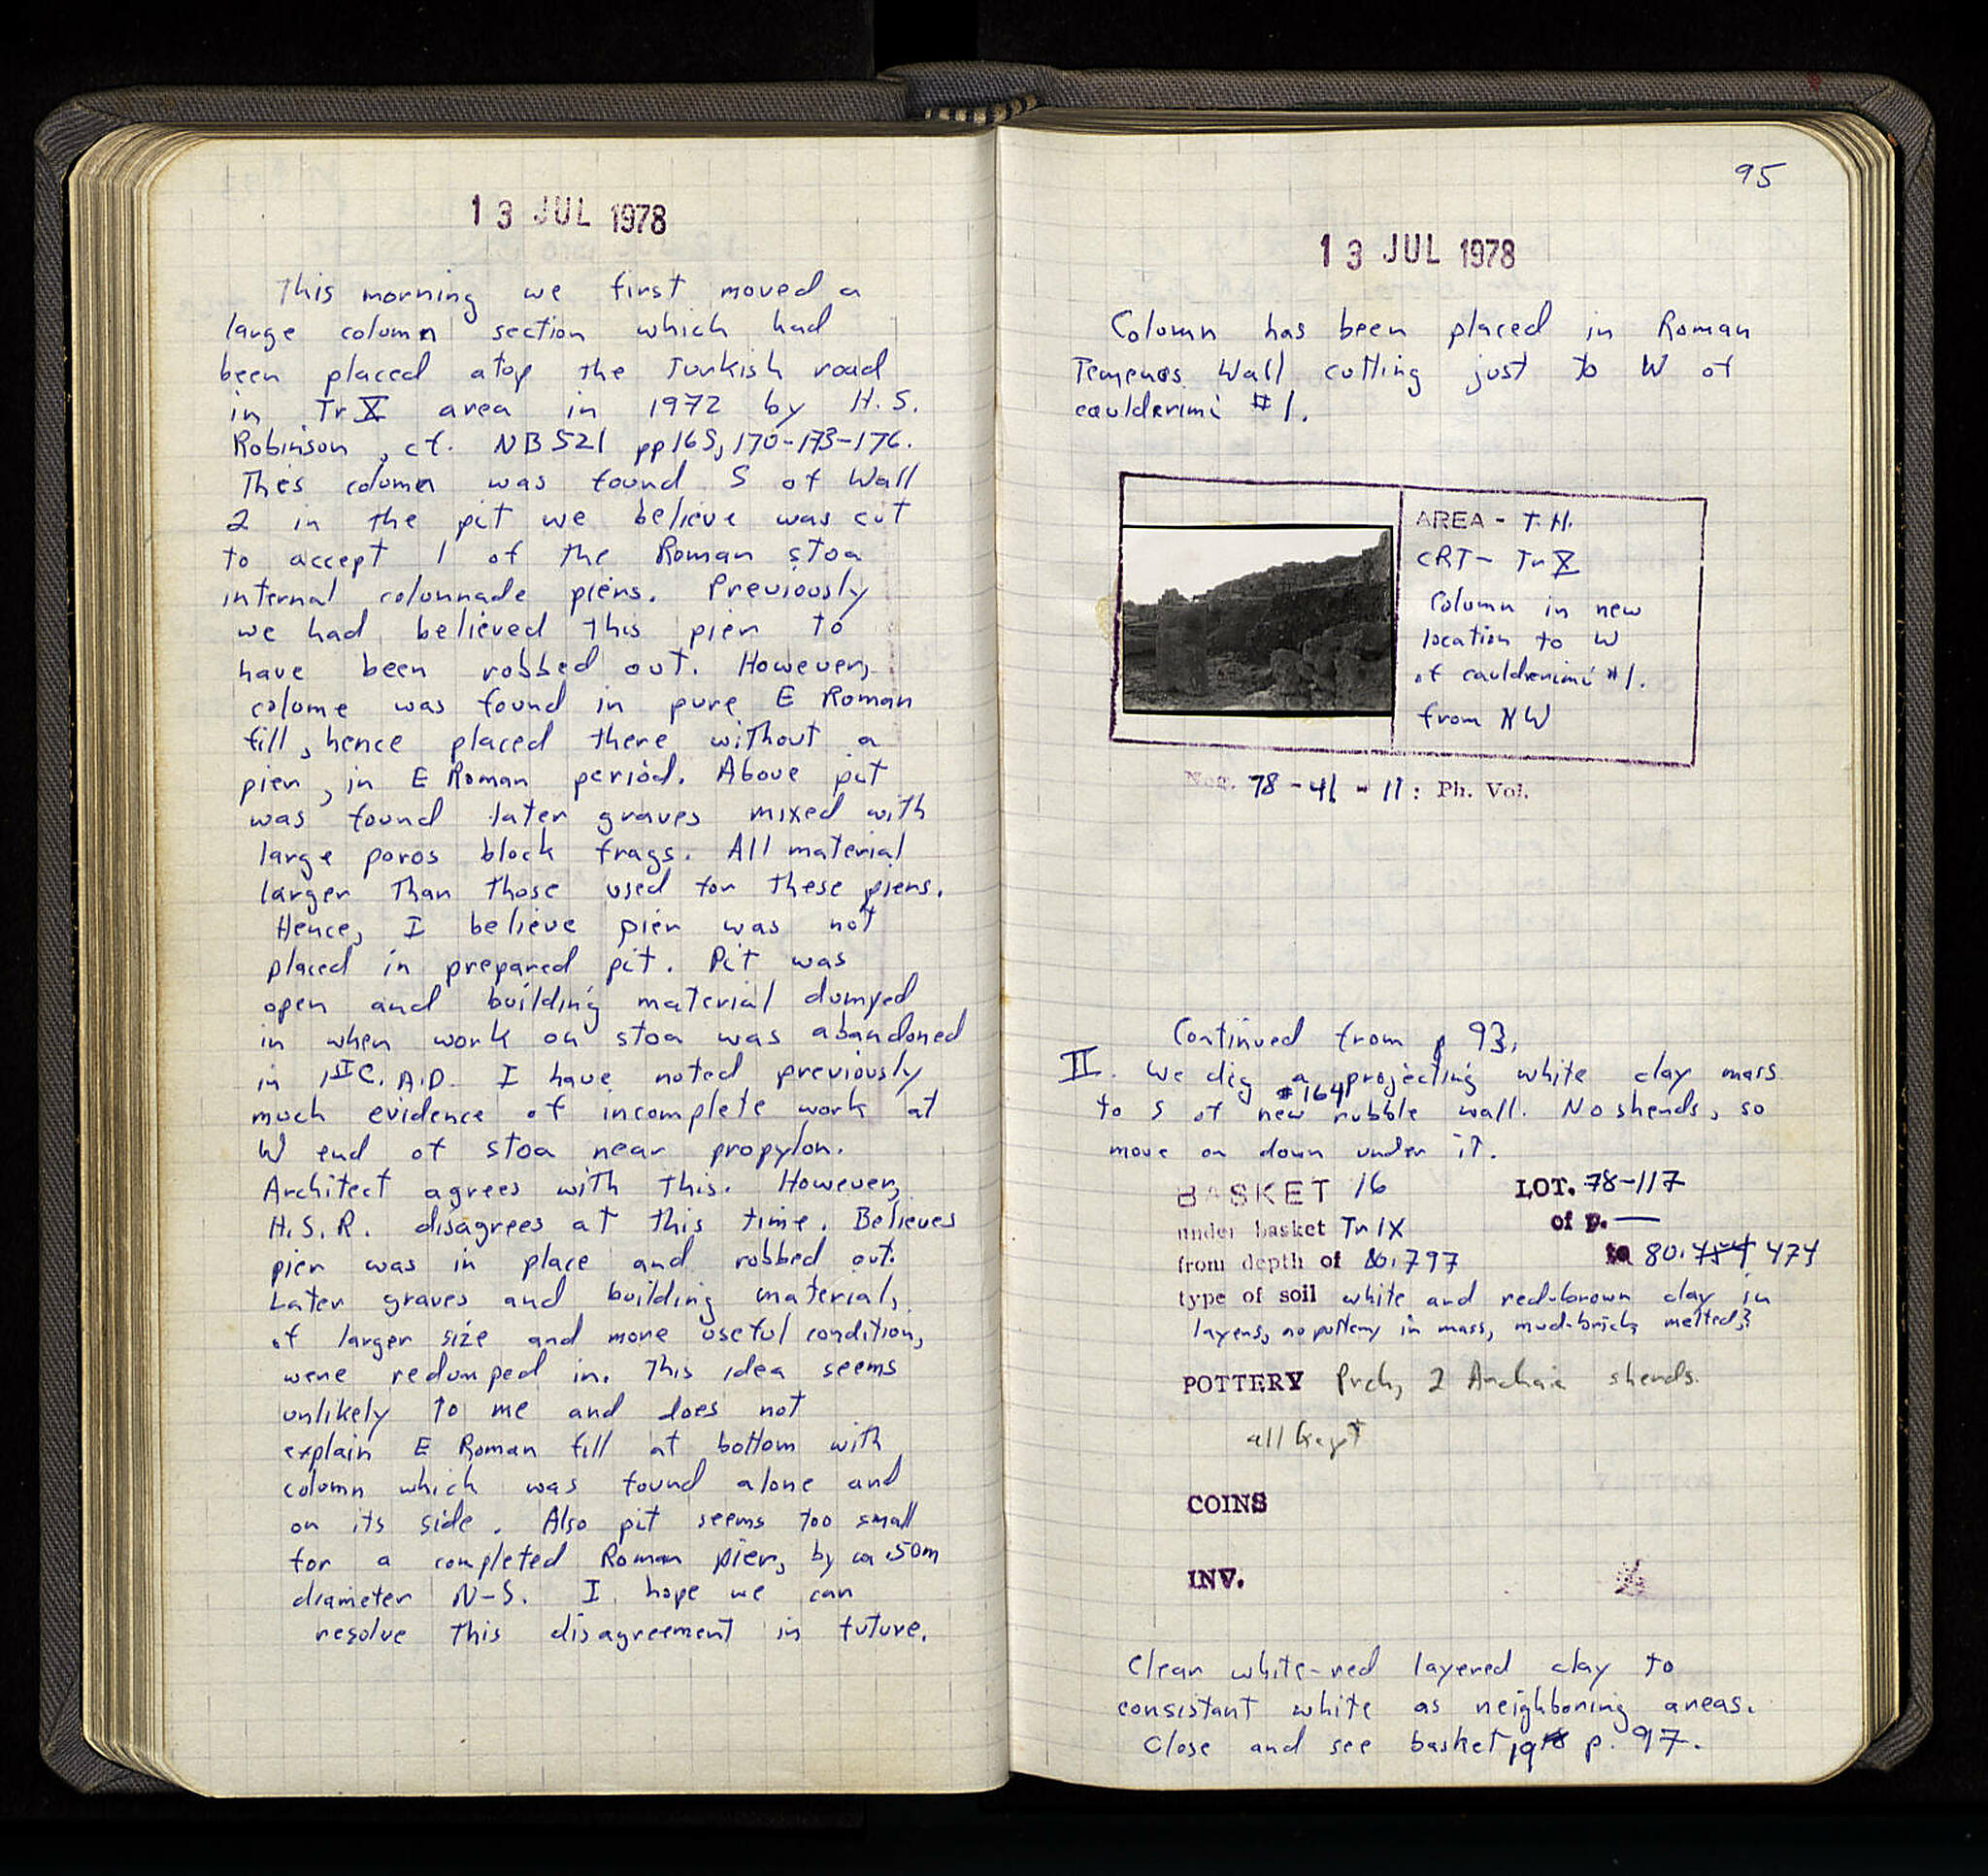 13 JUL 1978
This morning we first moved a
large column section which had
been placed atop the Turkish road
in Tr X area in 1972 by H.S.
Robinson, cf. NB 521 pp 165, 170-173-176.
This column was found S of Wall
2 in the pit we believe was cut
to accept 1 of the Roman stoa
internal colonnade piers. Previously
we had believed this pier to
have been robbed out. However,
colume was found in pure E Roman
fill, hence placed there without a
pier, in E Roman period. Above pit
was found later graves mixed with
large poros block frags. All material
larger than those used for these piers.
Hence, I believe pier was not
placed in prepared pit. Pit was
open and building material dumped
in when work on stoa was abandoned
in 1st C. A.D. I have noted previously
much evidence of incomplete work at
W end of stoa near propylon.
Architect agrees with this. However,
H.S.R. disagrees at this time. Believes
pier was in place and robbed out.
Later graves and building materials,
of larger size and more useful condition,
were redumped in. This idea seems
unlikely to me and does not
explain E Roman fill at bottom with
column which was found alone and
on its side. Also pit seems too small
for a completed Roman pier, by ca .50m
diameter N-S. I hope we can
resolve this disagreement in future.
95
13 JUL 1978
Column has been placed in Roman
Temenos Wall cutting just to W of
caulderimi #1.
AREA - T.H.
CRT - Tr X
Column in new
location to W
of caulderimi #1.
from NW
Neg. 78-41-11: Ph. Vol.
Continued from p 93.
II. We dig a projecting white clay mass
to S of new #164 rubble wall. No sherds, so
move on down under it.
BASKET 16 LOT. 78-117
under basket Tr IX of p. —
from depth of 80.797 to 80.454 474
type of soil white and red-brown clay in
layers, no pottery in mass, mud-brick, melted?
POTTERY Preh, 2 Archaic sherds.
all kept
COINS
INV.
Clear white-red layered clay to
consistant white as neighboring areas.
Close and see basket 19 p. 97.